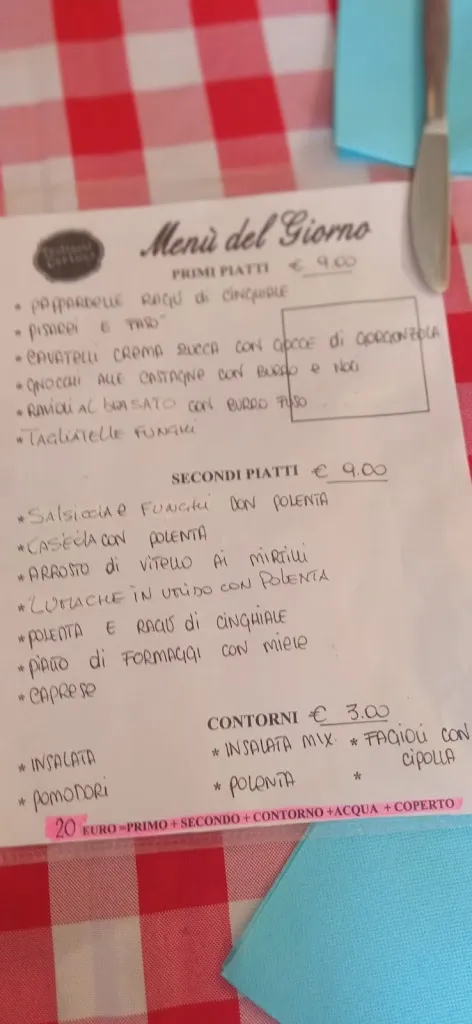 Menù del Giorno
PRIMI PIATTI € 9.00
* PAPPARDELLE RAGÙ di CINGHIALE
* PISAREI E FASO'
* CAVATELLI CREMA ZUCCA CON GOCCE di GORGONZOLA
* GNOCCHI ALLE CASTAGNE CON BURRO e NOCI
* RAVIOLI AL BRASATO CON BURRO FUSO
* TAGLIATELLE FUNGHI
SECONDI PIATTI € 9.00
* SALSICCIA e FUNGHI CON POLENTA
* CON POLENTA
* ARROSTO di VITELLO AI MIRTILLI
* LUMACHE IN UMIDO CON POLENTA
* POLENTA E RAGÙ di CINGHIALE
* PIATTO di FORMAGGI CON miele
* CAPRESE
CONTORNI € 3.00
* INSALATA * INSALATA MIX * FAGIOLI CON CIPOLLA
* POMODORI * POLENTA *
20 EURO =PRIMO + SECONDO + CONTORNO +ACQUA + COPERTO